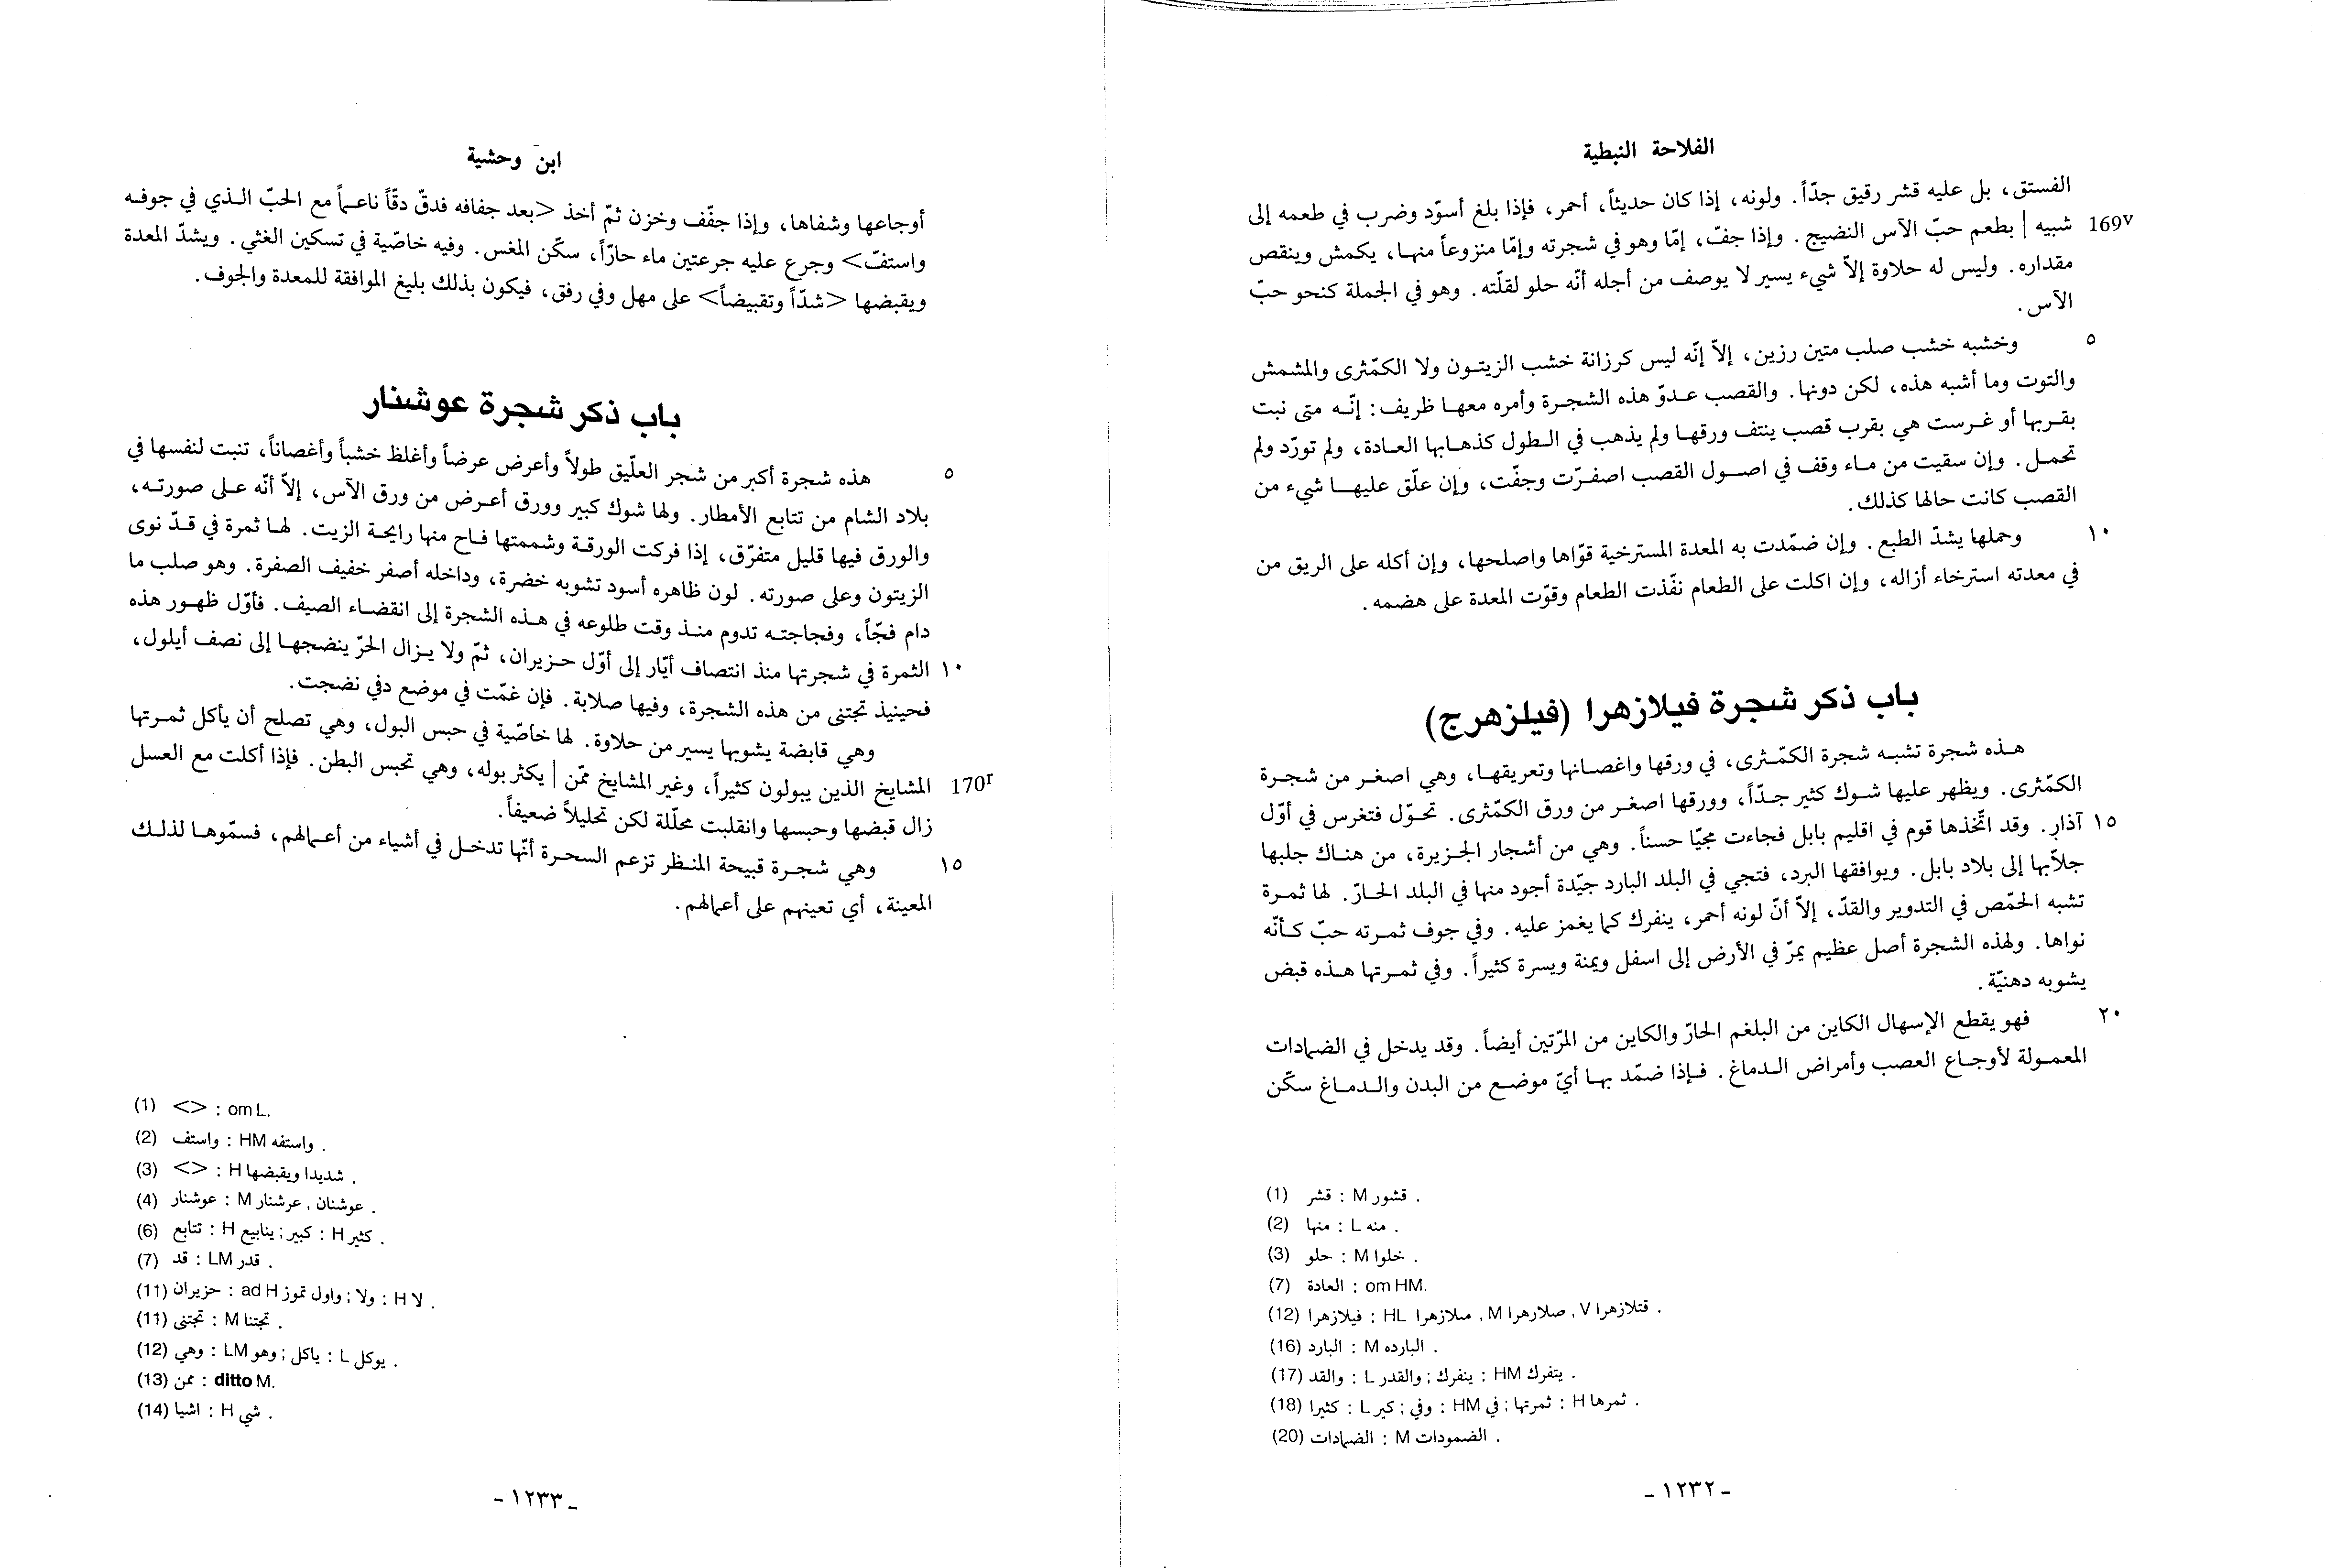 الفلاحة النبطية
الفستق، بل عليه قشر رقيق جدّاً. ولونه، إذا كان حديثاً، أحمر، فإذا بلغ أسوّد وضرب في طعمه إلى
169v شبيه | بطعم حبّ الآس النضيج. وإذا جفّ، إمّا وهو في شجرته وإمّا منزوعاً منها، يكمش وينقص
مقداره. وليس له حلاوة إلاّ شيء يسير لا يوصف من أجله أنّه حلو لقلّته. وهو في الجملة كنحو حبّ
الآس.
٥ وخشبه خشب صلب متين رزين، إلاّ إنّه ليس كرزانة خشب الزيتون ولا الكمّثرى والمشمش
والتوت وما أشبه هذه، لكن دونها. والقصب عدوّ هذه الشجرة وأمره معها ظريف: إنّه متى نبت
بقربها أو غرست هي بقرب قصب ينتف ورقها ولم يذهب في الطول كذهابها العادة، ولم تورّد ولم
تحمل. وإن سقيت من ماء وقف في اصول القصب اصفرّت وجفّت، وإن علّق عليها شيء من
القصب كانت حالها كذلك.
١٠ وحملها يشدّ الطبع. وإن ضمّدت به المعدة المسترخية قوّاها واصلحها، وإن أكله على الريق من
في معدته استرخاء أزاله، وإن اكلت على الطعام نفّذت الطعام وقوّت المعدة على هضمه.
باب ذكر شجرة فيلازهرا (فيلزهرج)
هذه شجرة تشبه شجرة الكمّثرى، في ورقها واغصانها وتعريقها، وهي اصغر من شجرة
الكمّثرى. ويظهر عليها شوك كثير جدّاً، وورقها اصغر من ورق الكمّثرى. تحوّل فتغرس في أوّل
١٥ آذار. وقد اتّخذها قوم في اقليم بابل فجاءت مجيّا حسناً. وهي من أشجار الجزيرة، من هناك جلبها
جلاّبها إلى بلاد بابل. ويوافقها البرد، فتجي في البلد البارد جيّدة أجود منها في البلد الحارّ. لها ثمرة
تشبه الحمّص في التدوير والقدّ، إلاّ أنّ لونه أحمر، ينفرك كما يغمز عليه. وفي جوف ثمرته حبّ كأنّه
نواها. ولهذه الشجرة أصل عظيم يمرّ في الأرض إلى اسفل ويمنة ويسرة كثيراً. وفي ثمرتها هذه قبض
يشوبه دهنيّة.
٢٠ فهو يقطع الإسهال الكاين من البلغم الحارّ والكاين من المرّتين أيضاً. وقد يدخل في الضمادات
المعمولة لأوجاع العصب وأمراض الدماغ. فإذا ضمّد بها أيّ موضع من البدن والدماغ سكّن
(1) قشر : M قشور .
(2) منها : L منه .
(3) حلو : M خلوا .
(7) العادة : om HM.
(12) فيلازهرا : HL مىلازهرا , M صلارهرا , V قتلازهرا .
(16) البارد : M البارده .
(17) والقد : L والقدر ; ينفرك : HM يتفرك .
(18) كثيرا : L كير ; وفي : HM في ; ثمرتها : H ثمرها .
(20) الضمادات : M الضمودات .
- ١٢٣٢ -
ابن وحشية
أوجاعها وشفاها، وإذا جفّف وخزن ثمّ أخذ <بعد جفافه فدقّ دقّاً ناعماً مع الحبّ الذي في جوفه
واستفّ> وجرع عليه جرعتين ماء حارّاً، سكّن المغس. وفيه خاصّية في تسكين الغثي. ويشدّ المعدة
ويقبضها <شدّاً وتقبيضاً> على مهل وفي رفق، فيكون بذلك بليغ الموافقة للمعدة والجوف.
باب ذكر شجرة عوشنار
٥ هذه شجرة أكبر من شجر العلّيق طولاً وأعرض عرضاً وأغلظ خشباً وأغصاناً، تنبت لنفسها في
بلاد الشام من تتابع الأمطار. ولها شوك كبير وورق أعرض من ورق الآس، إلاّ أنّه على صورته،
والورق فيها قليل متفرّق، إذا فركت الورقة وشممتها فاح منها رايحة الزيت. لها ثمرة في قدّ نوى
الزيتون وعلى صورته. لون ظاهره أسود تشوبه خضرة، وداخله أصفر خفيف الصفرة. وهو صلب ما
دام فجّاً، وفجاجته تدوم منذ وقت طلوعه في هذه الشجرة إلى انقضاء الصيف. فأوّل ظهور هذه
١٠ الثمرة في شجرتها منذ انتصاف أيّار إلى أوّل حزيران، ثمّ ولا يزال الحرّ ينضجها إلى نصف أيلول،
فحينيذ تجتنى من هذه الشجرة، وفيها صلابة. فإن غمّت في موضع دفي نضجت.
وهي قابضة يشوبها يسير من حلاوة. لها خاصّية في حبس البول، وهي تصلح أن يأكل ثمرتها
170r المشايخ الذين يبولون كثيراً، وغير المشايخ ممّن | يكثر بوله، وهي تحبس البطن. فإذا أكلت مع العسل
زال قبضها وحبسها وانقلبت محلّلة لكن تحليلاً ضعيفاً.
١٥ وهي شجرة قبيحة المنظر تزعم السحرة أنّها تدخل في أشياء من أعمالهم، فسمّوها لذلك
المعينة، أي تعينهم على أعمالهم.
(1) <> : om L.
(2) واستف : HM واستفه .
(3) <> : H شديدا ويقبضها .
(4) عوشنار : M عوشنان , عرشنار .
(6) تتابع : H ينابيع ; كبير : H كثير .
(7) قد : LM قدر .
(11) حزيران : ad H واول تموز ; ولا : H لا .
(11) تجتنى : M تجتنا .
(12) وهي : LM وهو ; ياكل : L يوكل .
(13) ممن : ditto M.
(14) اشيا : H شي .
- ١٢٣٣ -